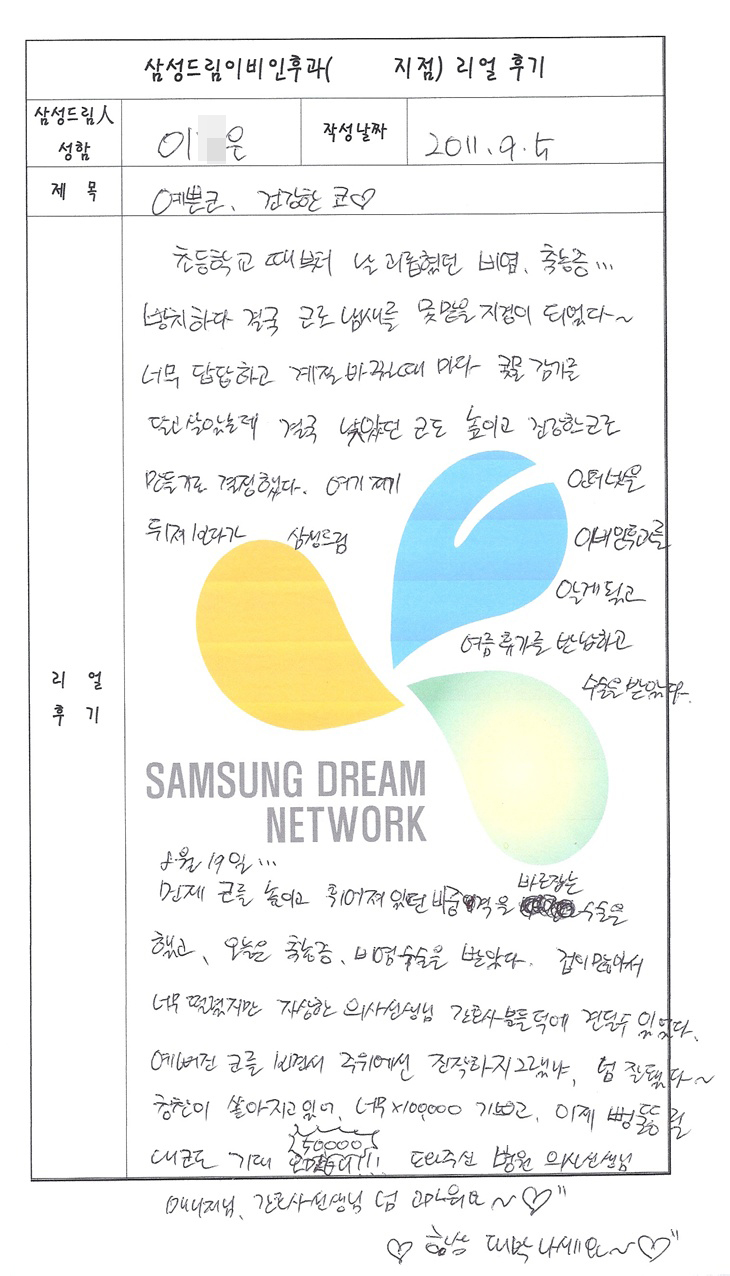 삼성드림이비인후과( 지점) 리얼 후기
삼성드림人 성함 이 은 작성날짜 2011.9.5
제 목 예쁜코, 건강한 코♡
리 얼 후 기
초등학교 때부터 날 괴롭혔던 비염, 축농증...
방치하다 결국 코로 냄새를 못맡을 지경이 되었다~
너무 답답하고 계절 바뀔때 마다 콧물 감기를
달고 살았는데 결국 낮았던 코도 높이고 건강한 코로
만들기로 결정했다. 여기 저기 인터넷을
뒤져 보다가 삼성드림 이비인후과를
알게 됐고
여름 휴가를 반납하고
수술을 받았다.
SAMSUNG DREAM
NETWORK
8월 19일...
먼저 코를 높이고 휘어져 있던 비중격을 바로잡는 수술을
했고, 오늘은 축농증, 비염수술을 받았다. 겁이 많아서
너무 떨렸지만 자상한 의사선생님 간호사분들덕에 견딜수 있었다.
예뻐진 코를 보면서 주위에선 진작하지그랬냐, 넘 잘됐다~
칭찬이 쏟아지고있어, 너무x100,000 기쁘고, 이제 뻥 뚫릴
내코도 기대 50000 !!! 도와주신 병원 의사선생님
매니저님, 간호사선생님 넘 고마워요~♡"
♡ 강남 대박나세요~♡"